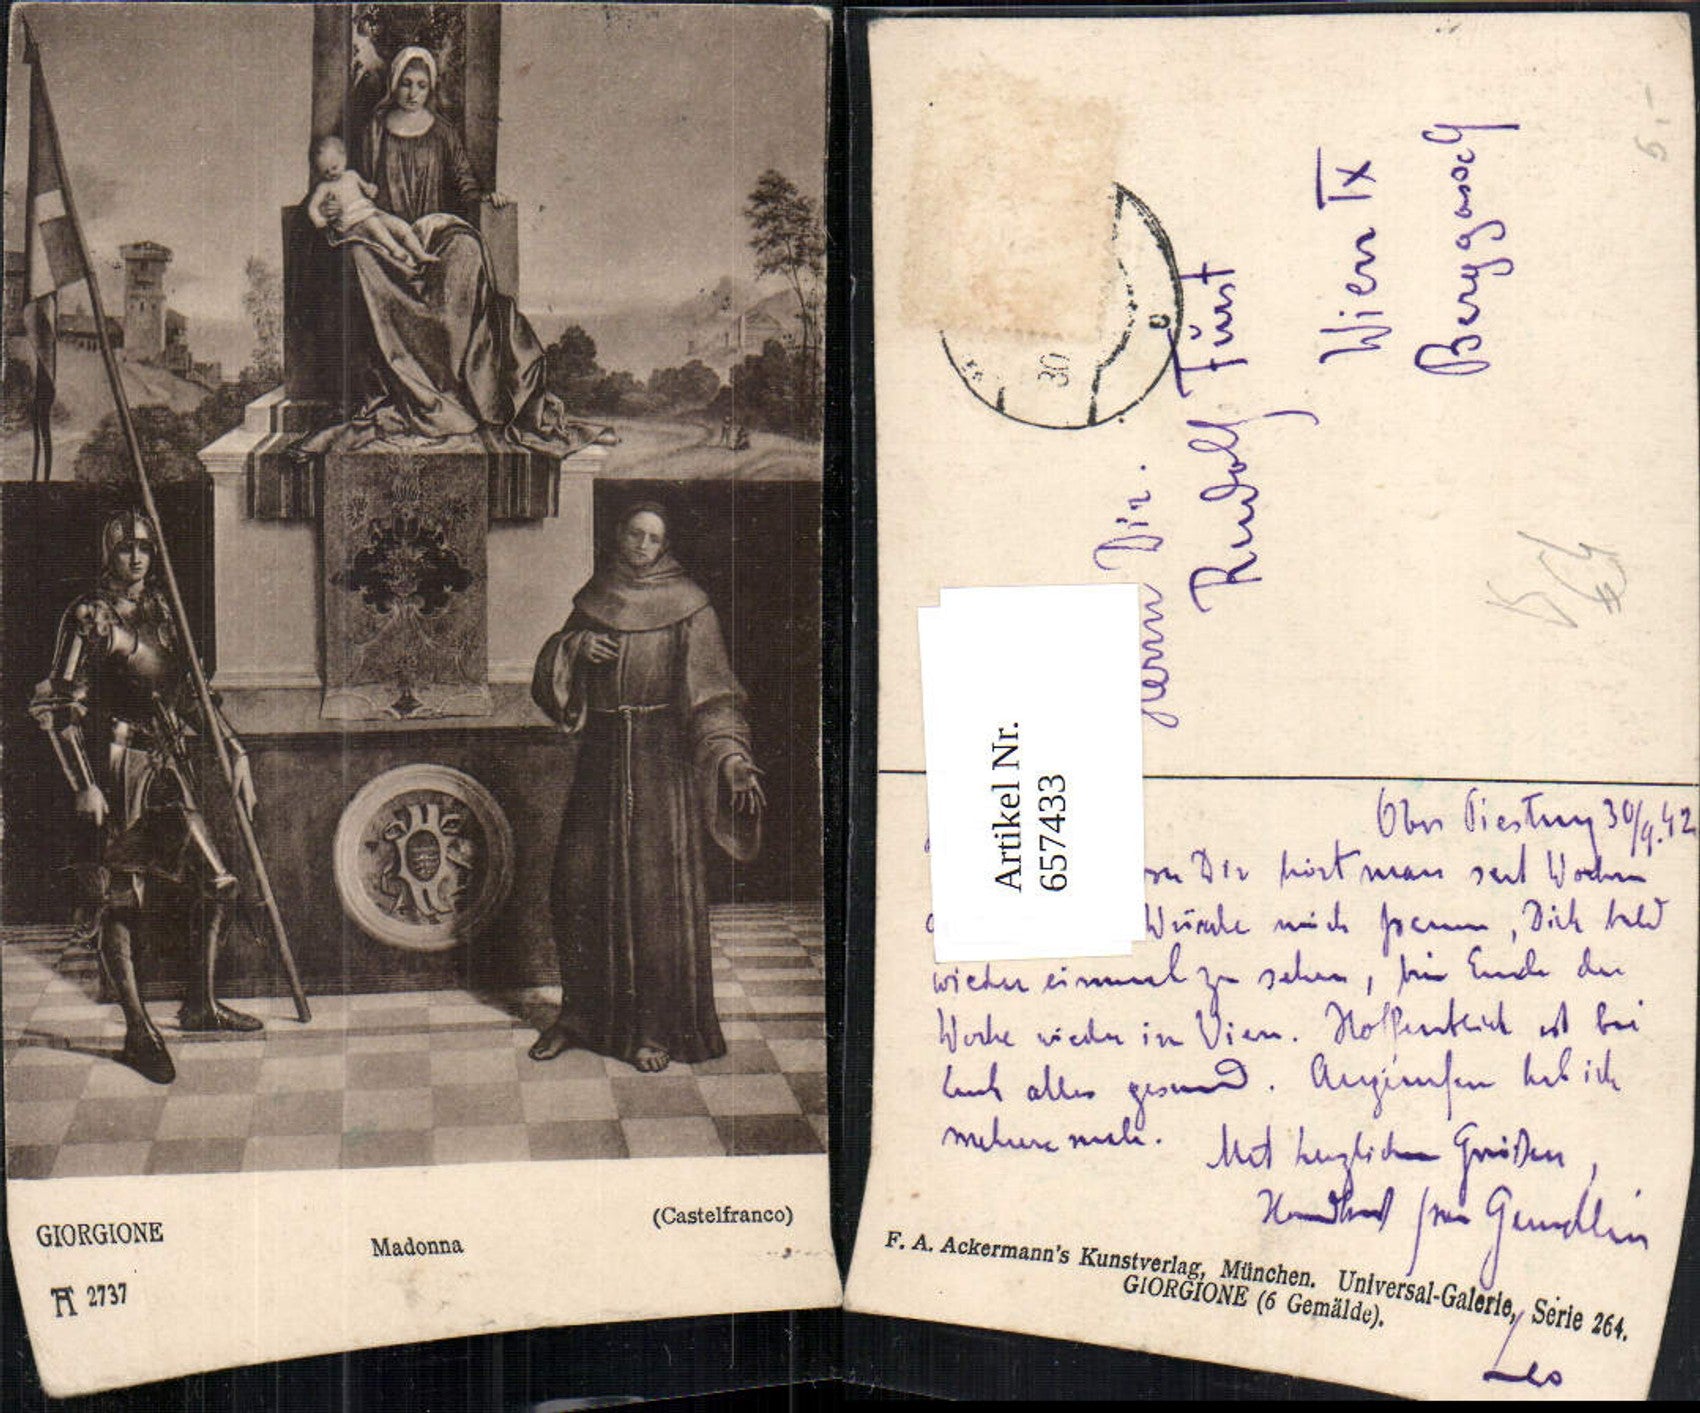 GIORGIONE
Madonna
(Castelfranco)
FA 2737
5.-
30
Herrn Dir.
Rudolf Fürst
Wien IX
Berggasse 4
Artikel Nr.
657433
Ober Piesting 30/9.42
Dir hört man seit Wochen
Würde mich freuen, Dich bald
wieder einmal zu sehen, bin Ende der
Woche wieder in Wien. Hoffentlich ist bei
Euch alles gesund. Angerufen hab ich
mehrere male.
Mit herzlichen Grüßen,
Handkuß
F. A. Ackermann's Kunstverlag, München. Universal-Galerie, Serie 264.
GIORGIONE (6 Gemälde).
Leo